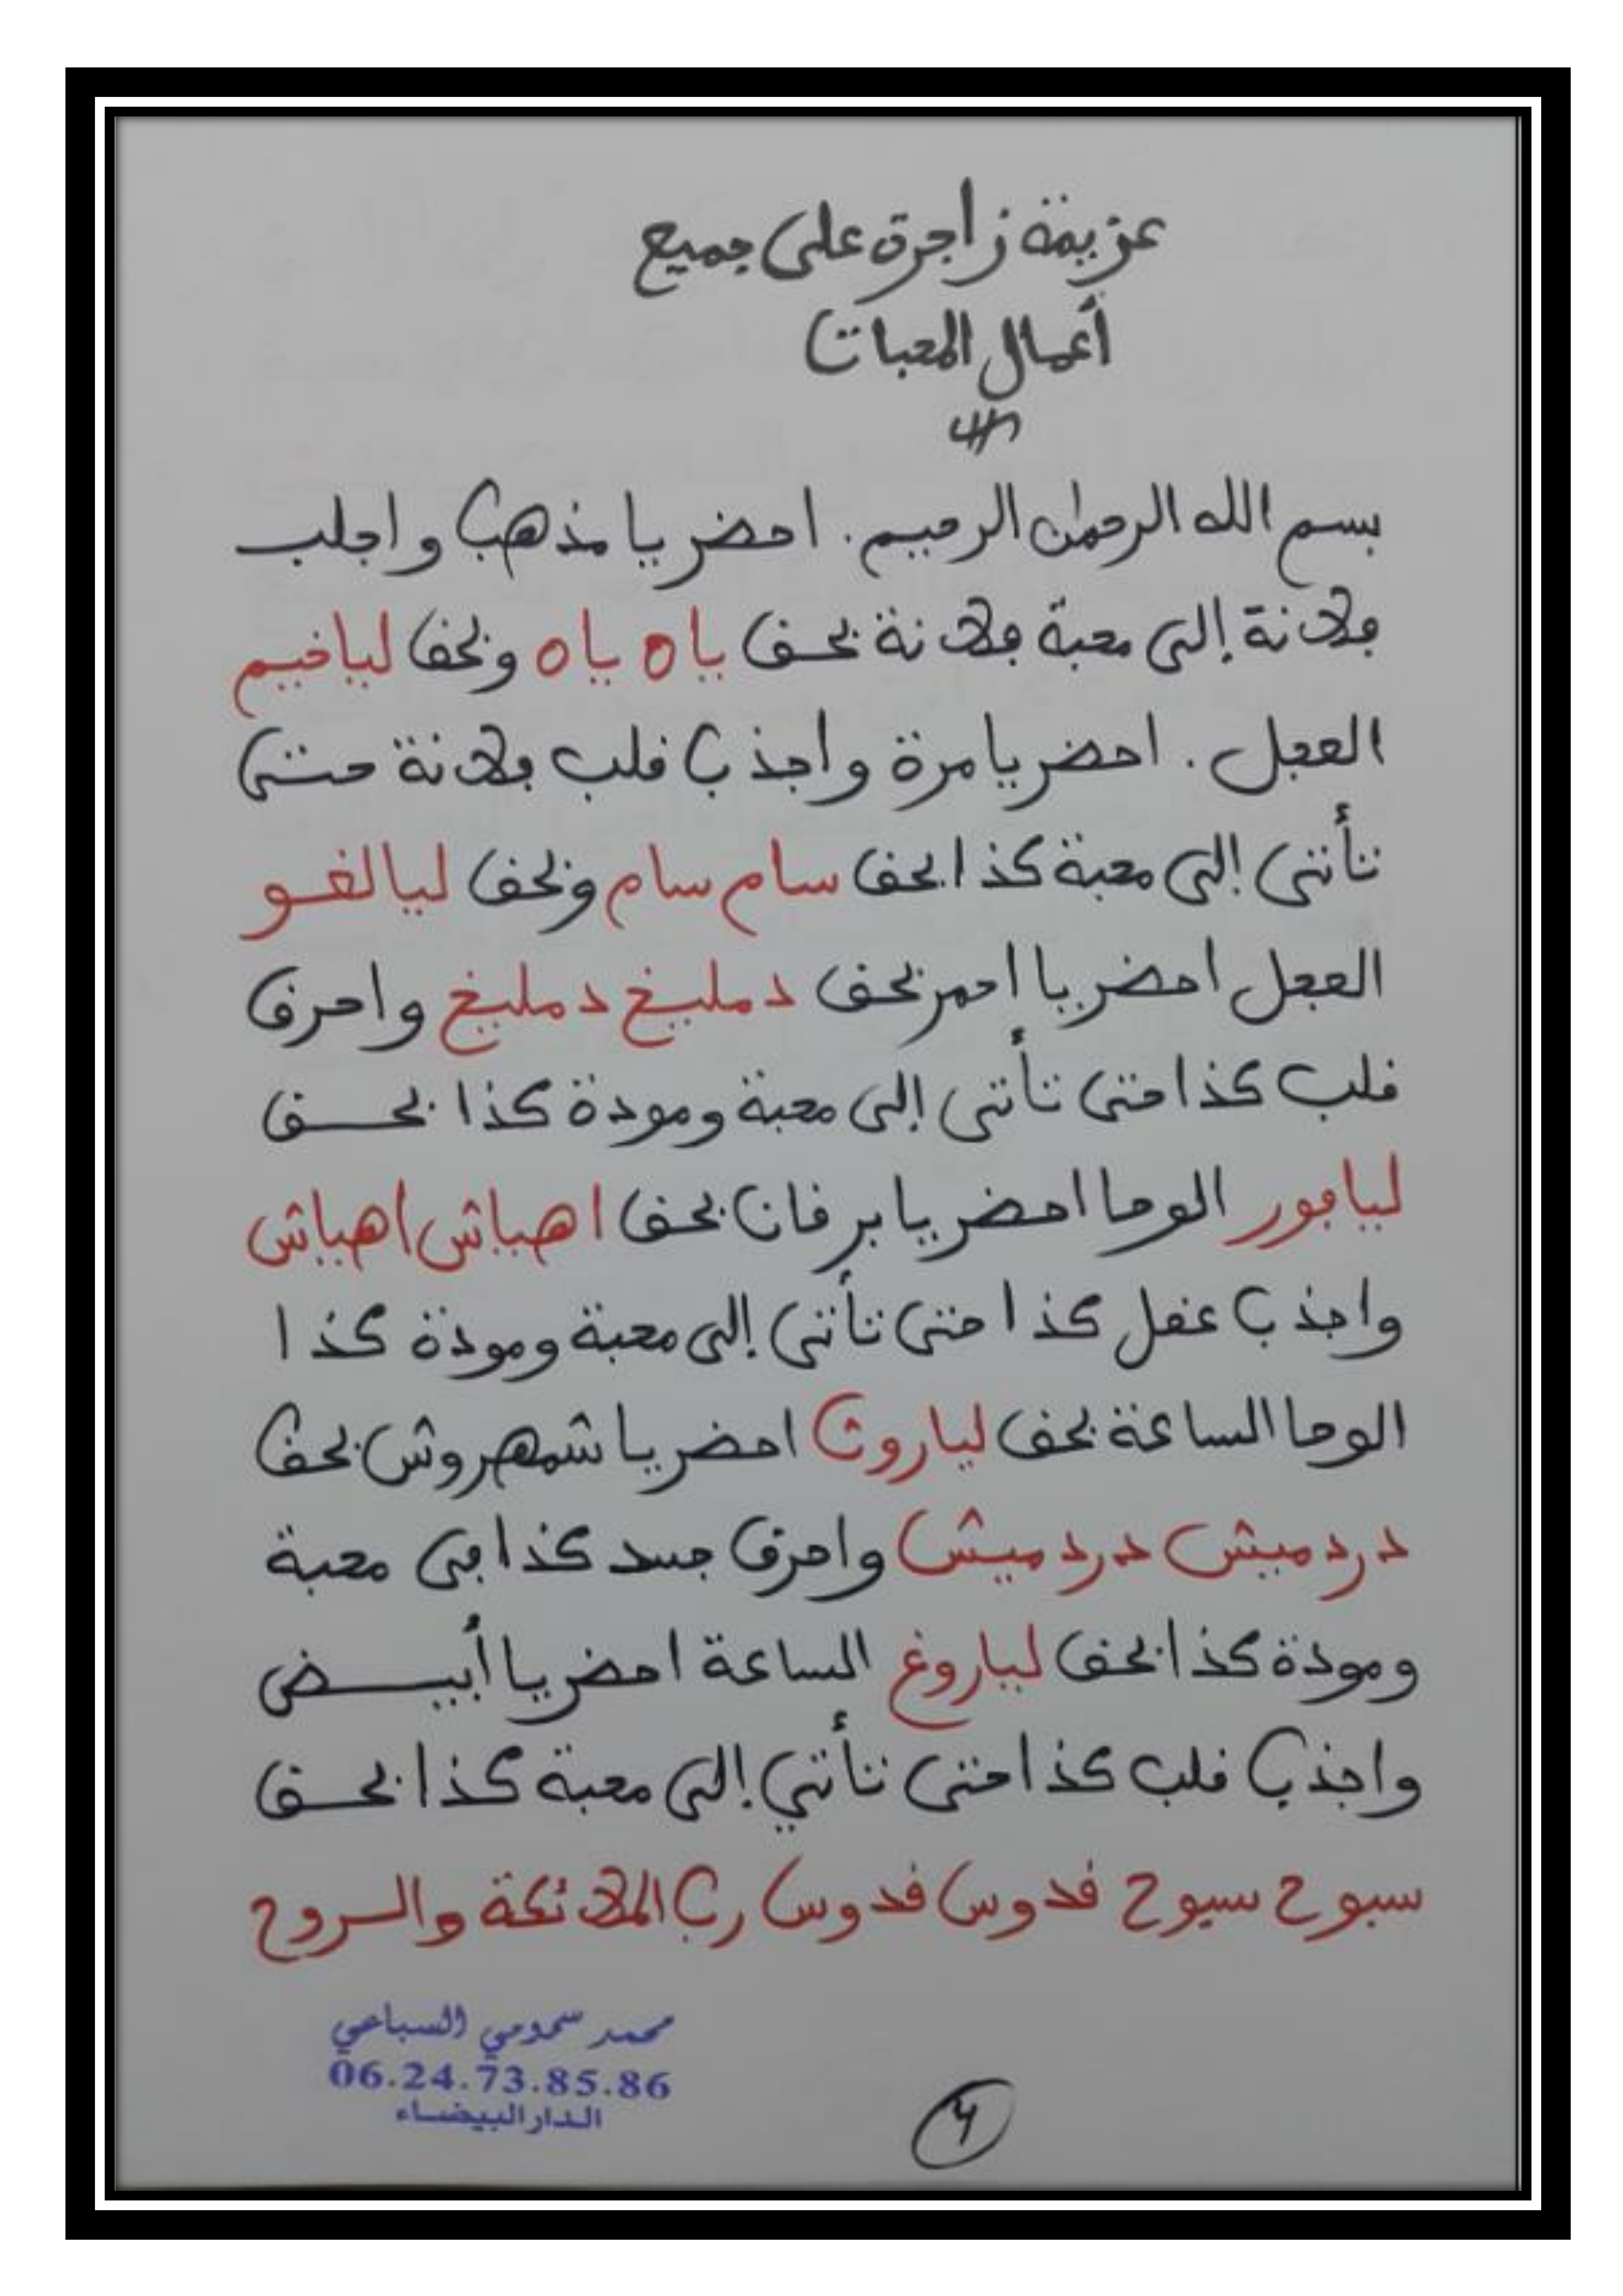 عزيمة زاجرة على جميع
أعمال المحبات
بسم الله الرحمان الرحيم. احضر يا مذهب واجلب
فلانة إلى محبة فلانة بحق ياه ياه وبحق لياخيم
العجل. احضر يا مرة واجذب قلب فلانة حتى
تأتي إلى محبة كذا بحق سام سام وبحق ليالغو
العجل احضر يا احمر بحق دمليخ دمليخ واحرق
قلب كذا حتى تأتي إلى محبة ومودة كذا بحق
ليافور الوحا احضر يا برقان بحق اهياش اهياش
واجذب عقل كذا حتى تأتي إلى محبة ومودة كذا
الوحا الساعة بحق لياروث احضر يا شمهروش بحق
دردميش دردميش واحرق جسد كذا في محبة
ومودة كذا بحق لياروغ الساعة احضر يا أبيض
واجذب قلب كذا حتى تأتي إلى محبة كذا بحق
سبوح سبوح قدوس قدوس رب الملائكة والروح
محمد سمومي السباعي
06.24.73.85.86
الدار البيضاء